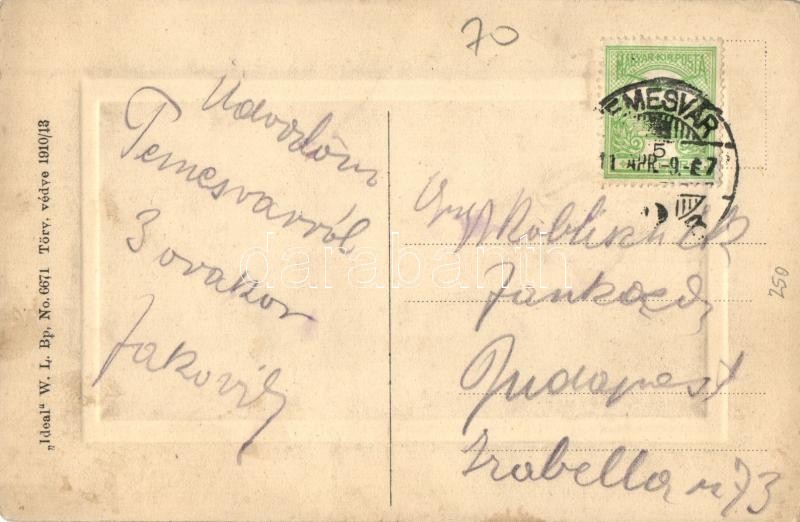 70
MAGYAR KIR. POSTA
EMESVÁR
5
11 APR-9.-E7
Üdvözlöm
Temesvarról
3 orakor
Jakovits
Janka
Budapest
Izabella u 73
250
„Ideal" W. L. Bp, No. 6671 Törv. védve 1910/13
darabanth